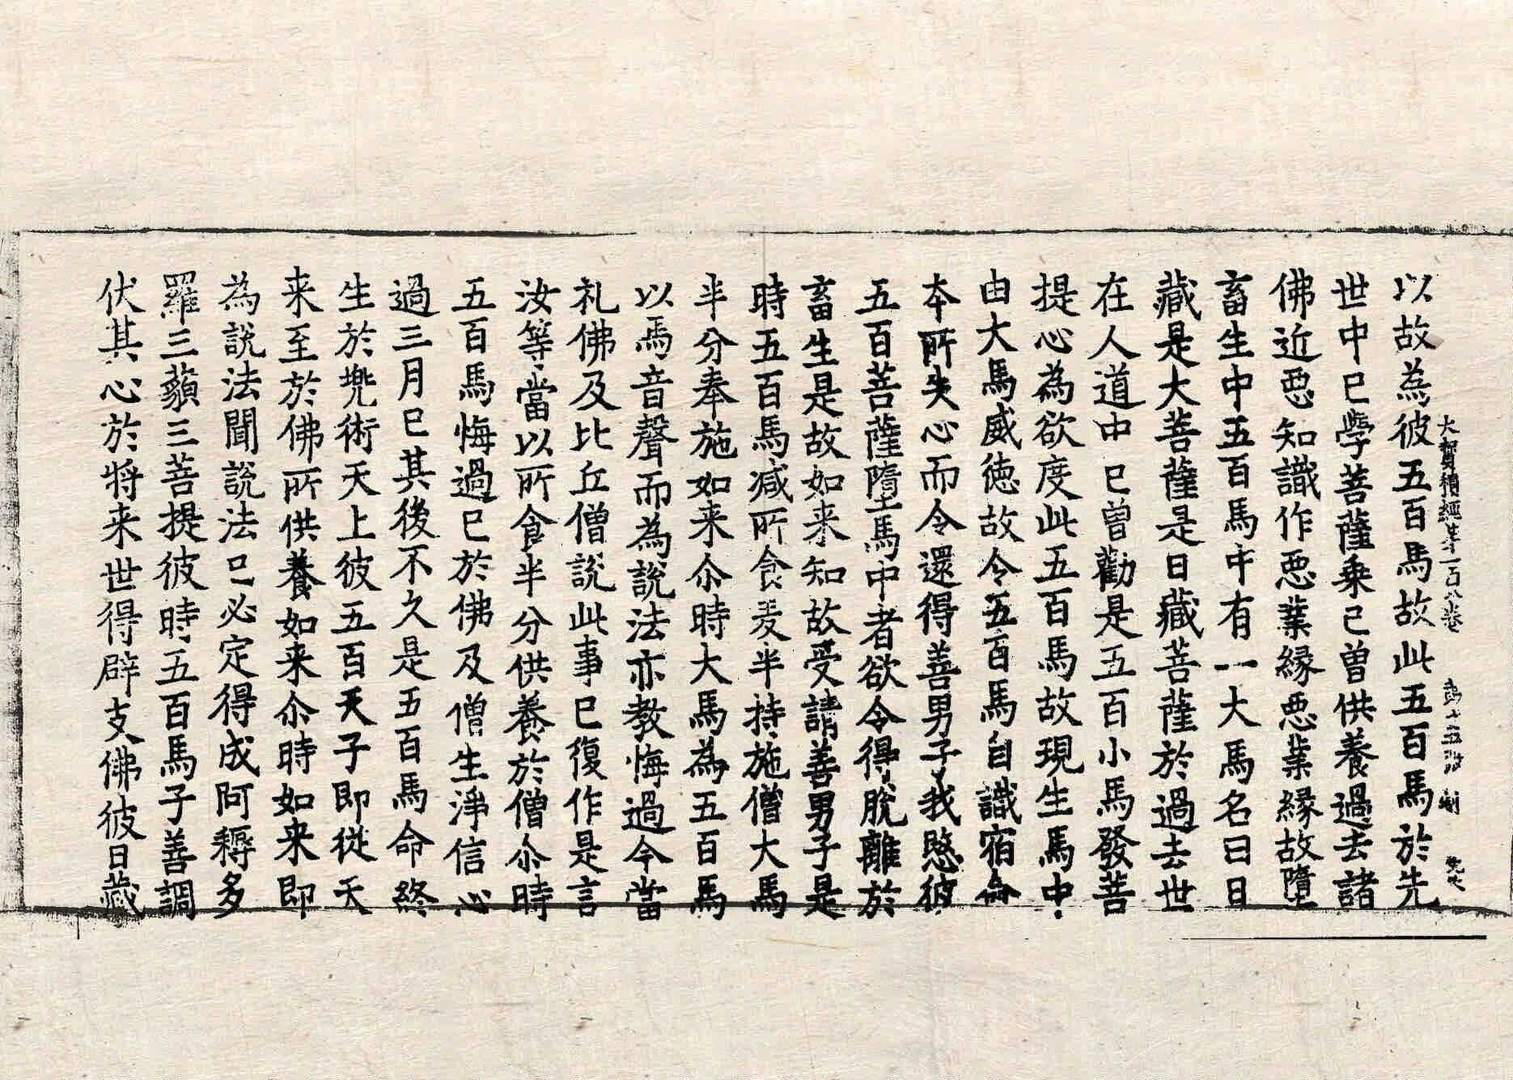 大寶積經苐一百八卷
以故為彼五百馬故此五百馬於先
世中已學菩薩乗已曽供養過去諸
佛近𢙣知識作𢙣業縁𢙣業縁故墮
畜生中五百馬中有一大馬名曰日
藏是大菩薩是日藏菩薩於過去世
在人道中已曽勸是五百小馬發菩
提心為欲度此五百馬故現生馬中
由大馬威徳故令五百馬自識宿命
夲所失心而令還得善男子我愍彼
五百菩薩墮馬中者欲令得脫離於
畜生是故如来知故受請善男子是
時五百馬减所食麦半持施僧大馬
半分奉施如来尒時大馬為五百馬
以馬音聲而為說法亦教悔過今當
礼佛及比丘僧說此事已復作是言
汝等當以所食半分供養於僧尒時
五百馬悔過已於佛及僧生淨信心
過三月已其後不久是五百馬命終
生於兠術天上彼五百天子即從天
来至於佛所供養如来尒時如来即
為說法聞說法已必定得成阿耨多
羅三藐三菩提彼時五百馬子善調
伏其心於將来世得辟支佛彼日藏